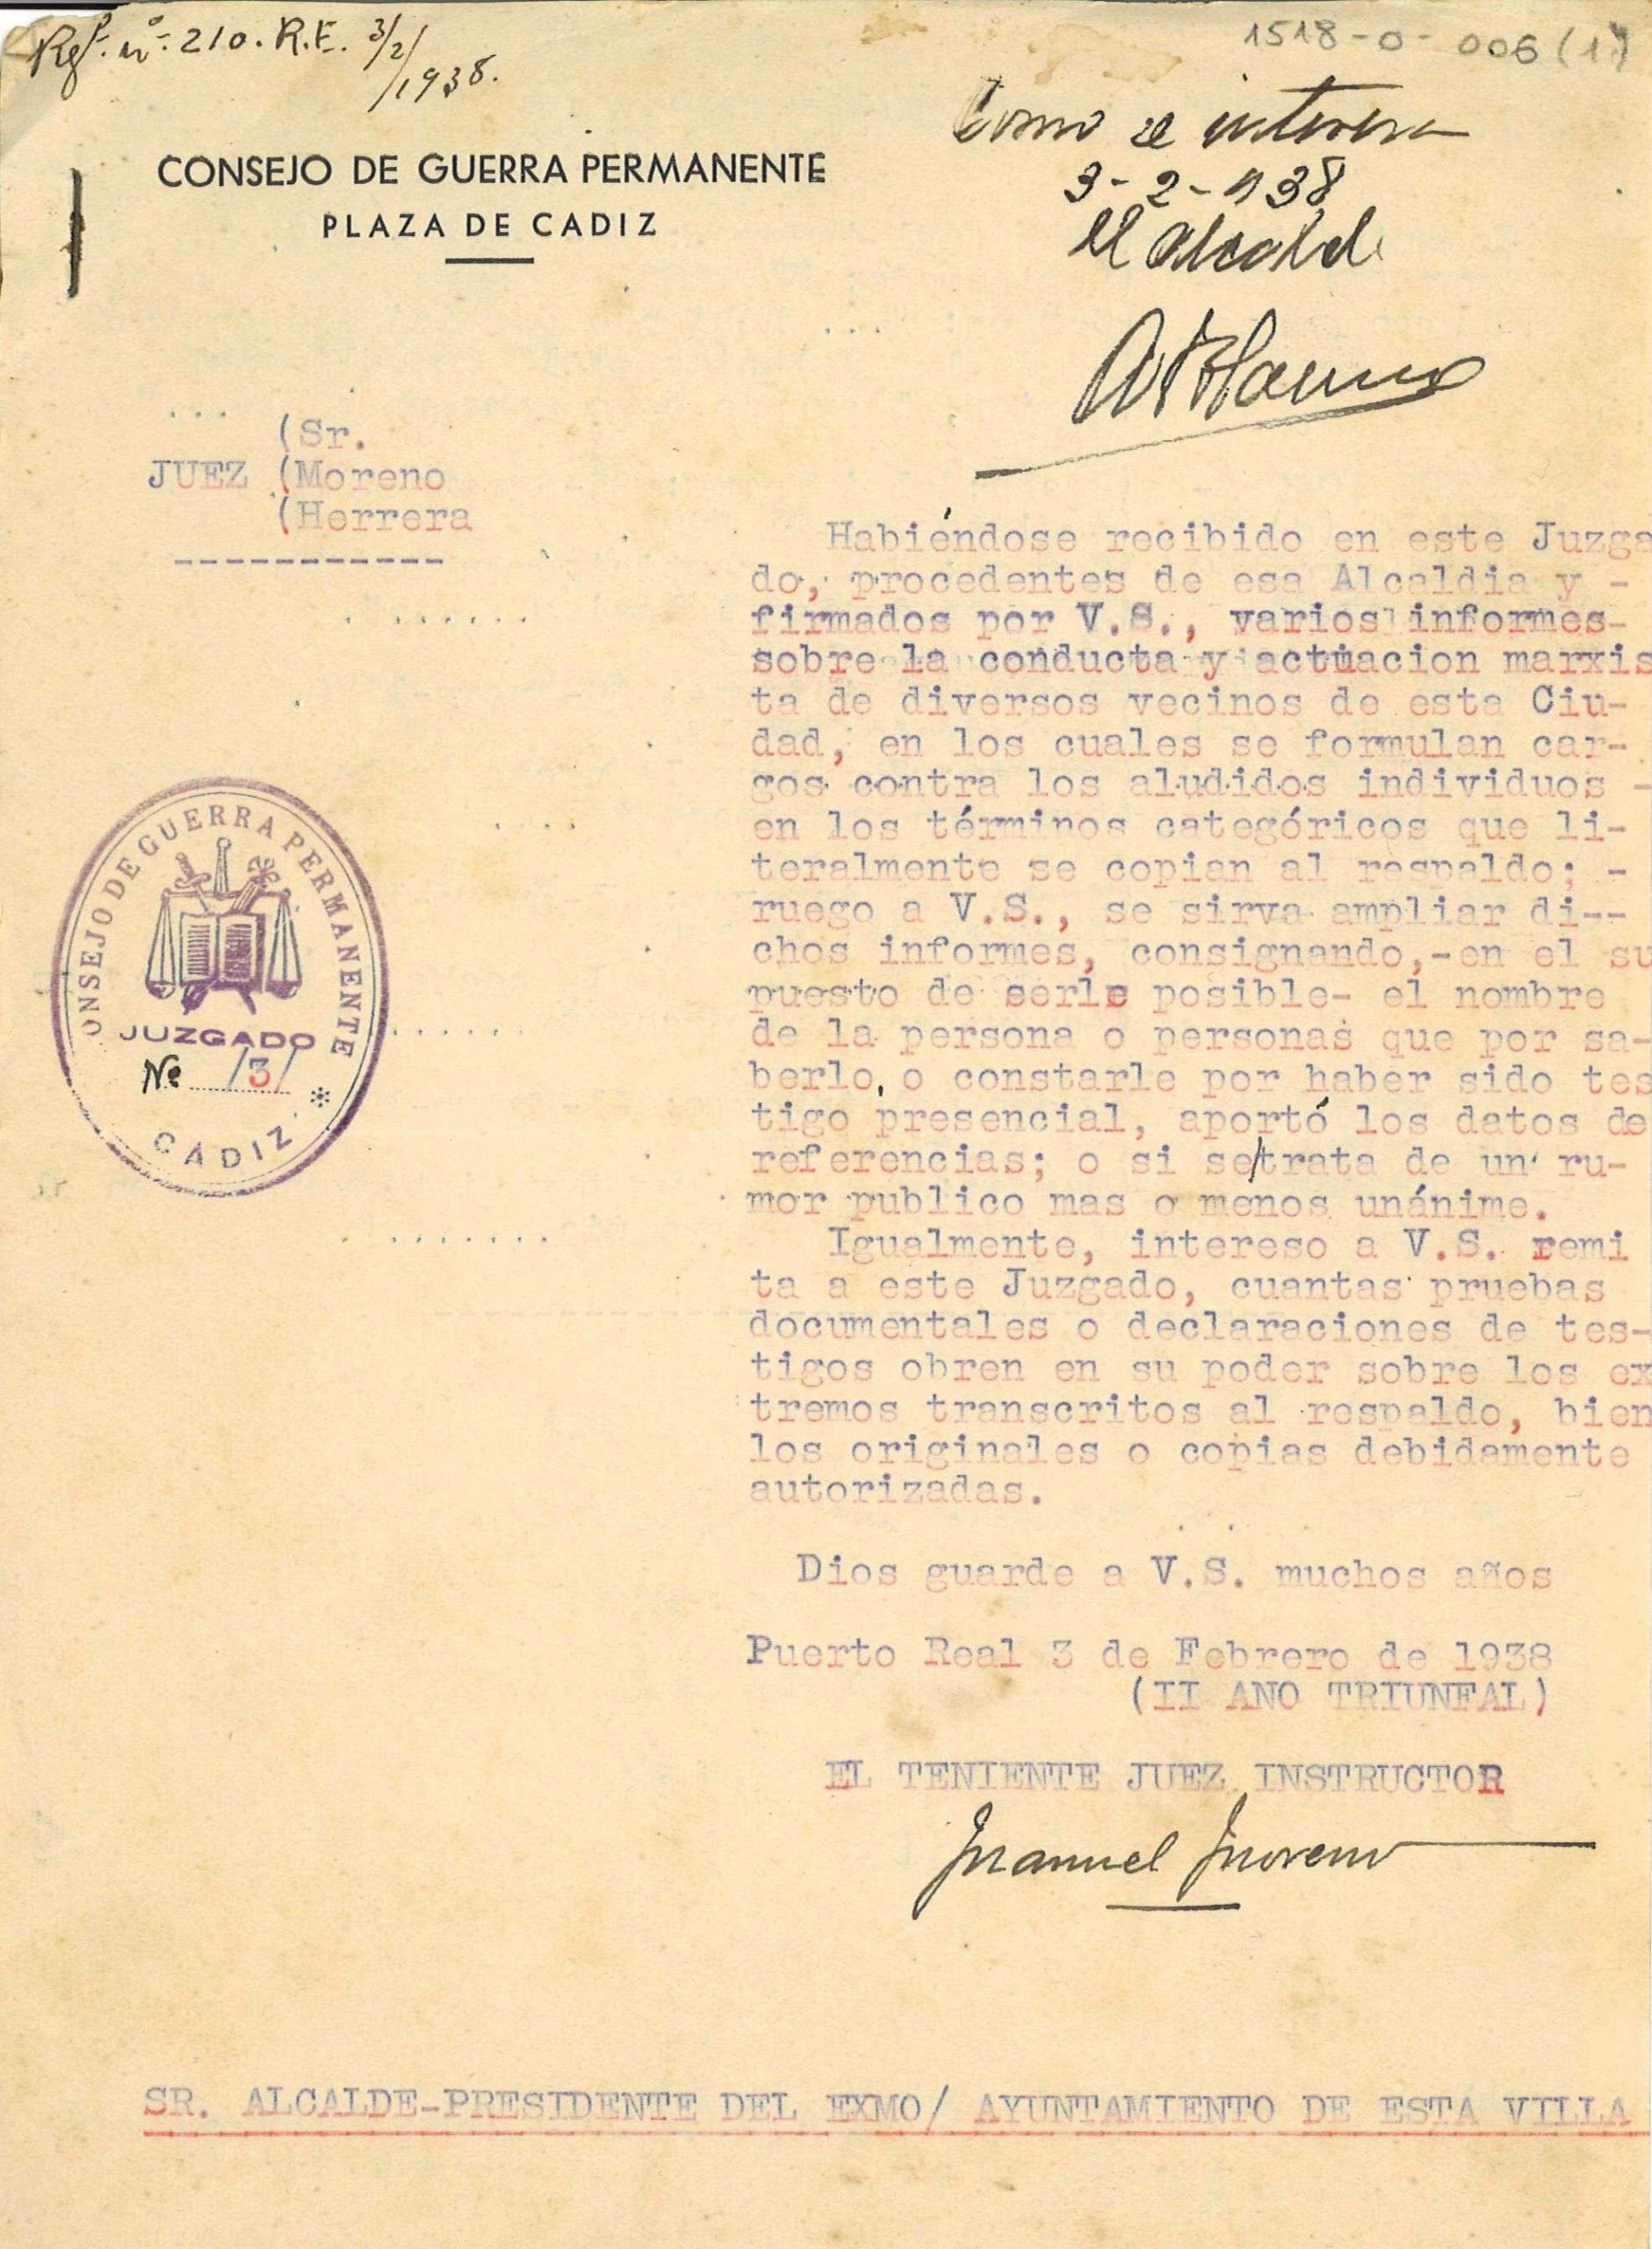 Refª. nº. 210. R.E. 3/2/1938.
1518-0-006(1)
Como se interesa
3-2-938
El Alcalde
CONSEJO DE GUERRA PERMANENTE
PLAZA DE CADIZ
(Sr.
JUEZ (Moreno
(Herrera
-----------
Habiéndose recibido en este Juzga
do, procedentes de esa Alcaldia y -
firmados por V.S., varios informes-
sobre la conducta y actuacion marxis
ta de diversos vecinos de esta Ciu-
dad, en los cuales se formulan car-
gos contra los aludidos individuos -
en los términos categóricos que li-
teralmente se copian al respaldo; -
ruego a V.S., se sirva ampliar di--
chos informes, consignando,-en el su
puesto de serle posible- el nombre
de la persona o personas que por sa-
berlo, o constarle por haber sido tes
tigo presencial, aportó los datos de
referencias; o si se/trata de un ru-
mor publico mas o menos unánime.
Igualmente, intereso a V.S. remi
ta a este Juzgado, cuantas pruebas
documentales o declaraciones de tes-
tigos obren en su poder sobre los ex
tremos transcritos al respaldo, bien
los originales o copias debidamente
autorizadas.
CONSEJO DE GUERRA PERMANENTE
JUZGADO
Nº 13
CADIZ
Dios guarde a V.S. muchos años
Puerto Real 3 de Febrero de 1938
(II ANO TRIUNFAL)
EL TENIENTE JUEZ INSTRUCTOR
Manuel Moreno
SR. ALCALDE-PRESIDENTE DEL EXMO/ AYUNTAMIENTO DE ESTA VILLA